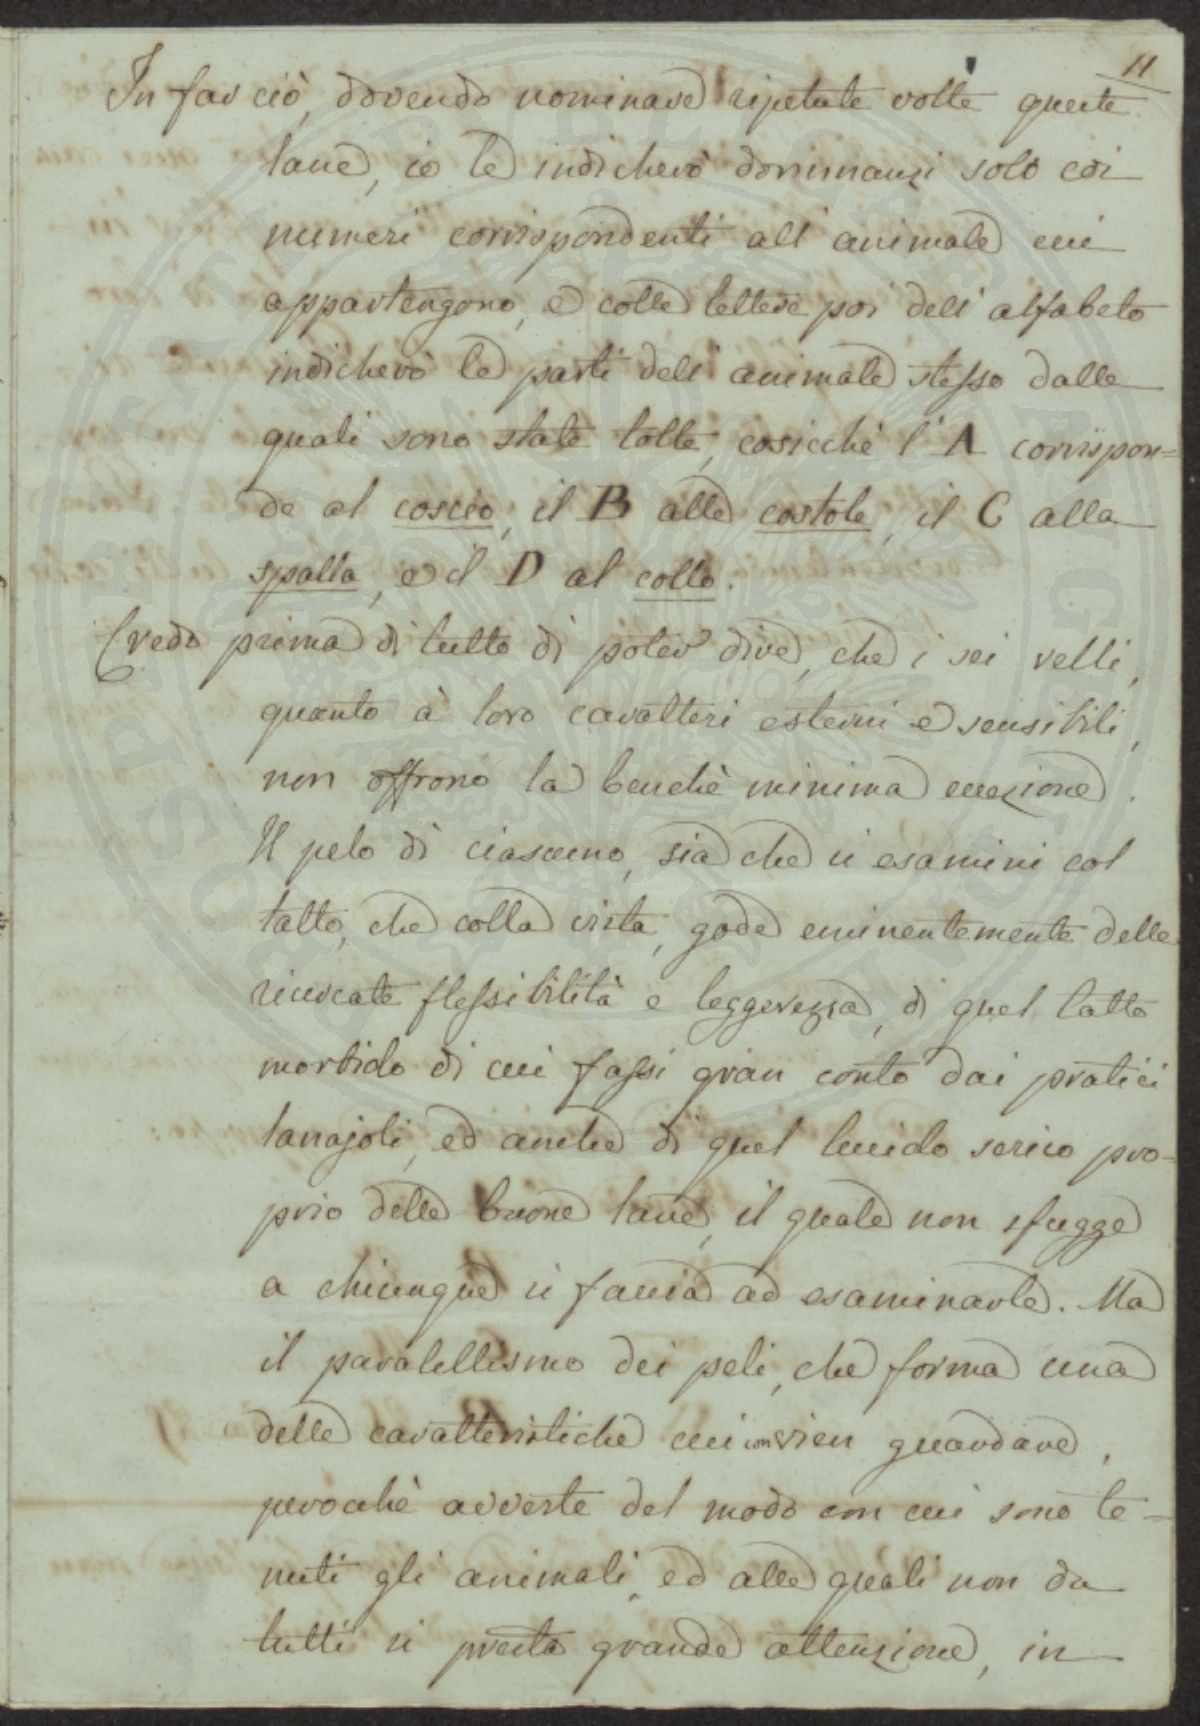 11
In far ciò, dovendo nominare ripetute volte queste
lane, io le indicherò dorinnanzi solo coi
numeri corrispondenti all' animale cui
appartengono, e colle lettere poi dell' alfabeto
indicherò le parti dell' animale stesso dalle
quali sono state tolte, cosicchè l' A corrispon=
de al coscio, il B alle costole, il C alla
spalla, e il D al collo.
Credo prima di tutto di poter dire, che i sei velli,
quanto à loro caratteri esterni e sensibili,
non offrono la benchè minima eccezione.
Il pelo di ciascuno, sia che si esamini col
tatto, che colla vista, gode eminentemente delle
ricercate flessibilità e leggerezza, di quel tatto
morbido di cui fassi gran conto dai pratici
lanajoli, ed anche di quel lucido serico pro=
prio delle buone lane, il quale non sfugge
a chiunque si faccia ad esaminarle. Ma
il paralellismo dei peli, che forma una
delle caratteristiche cui convien guardare,
perocchè avverte del modo con cui sono te=
nuti gli animali, ed alle quali non da
tutti si presta grande attenzione, in